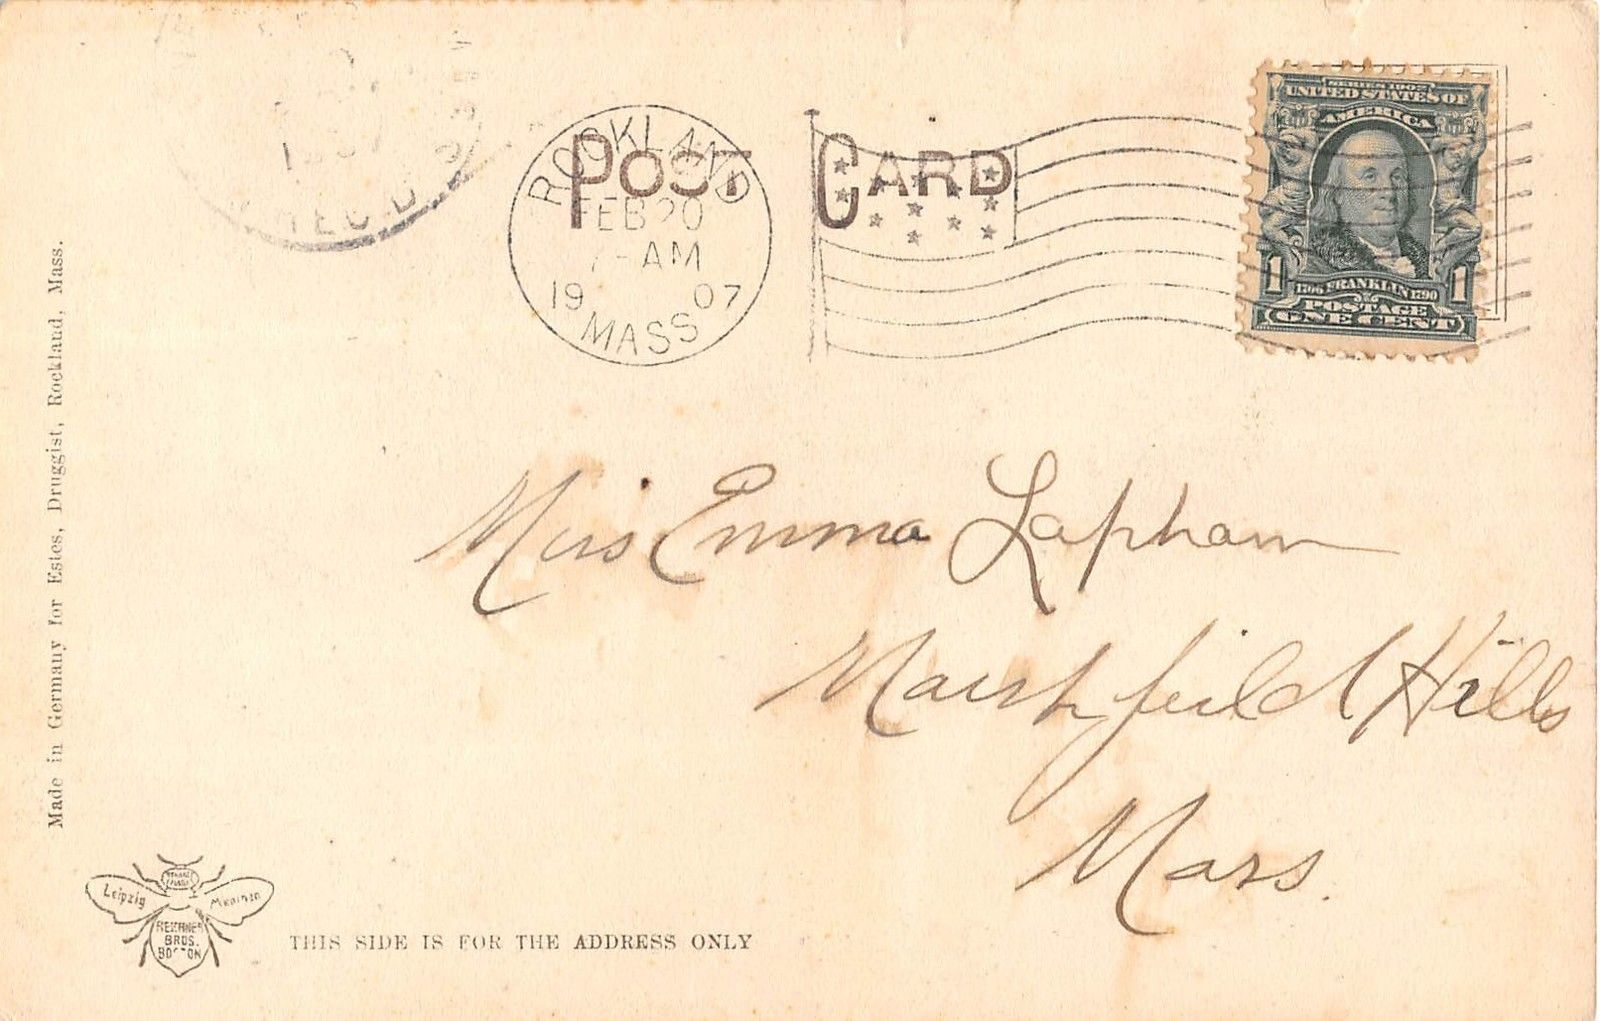 POST CARD
ROCKLAND
FEB 20
7-AM
1907
MASS
SERIES 1902
UNITED STATES OF
AMERICA
1 1
1706 FRANKLIN 1790
POSTAGE
ONE CENT
1907
REC'D
Miss Emma Lapham
Marshfeild Hills
Mass.
Made in Germany for Estes, Druggist, Rockland, Mass.
Leipzig
REICHNER
BROS.
BOSTON
THIS SIDE IS FOR THE ADDRESS ONLY